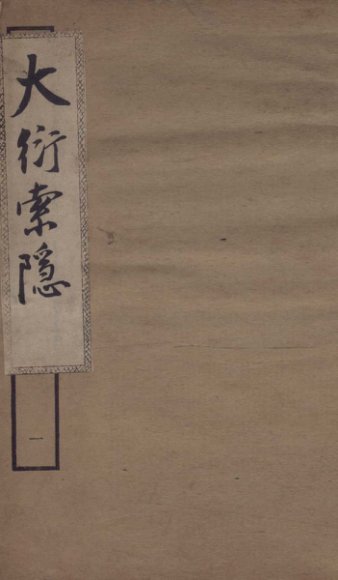 大衍索隐
一